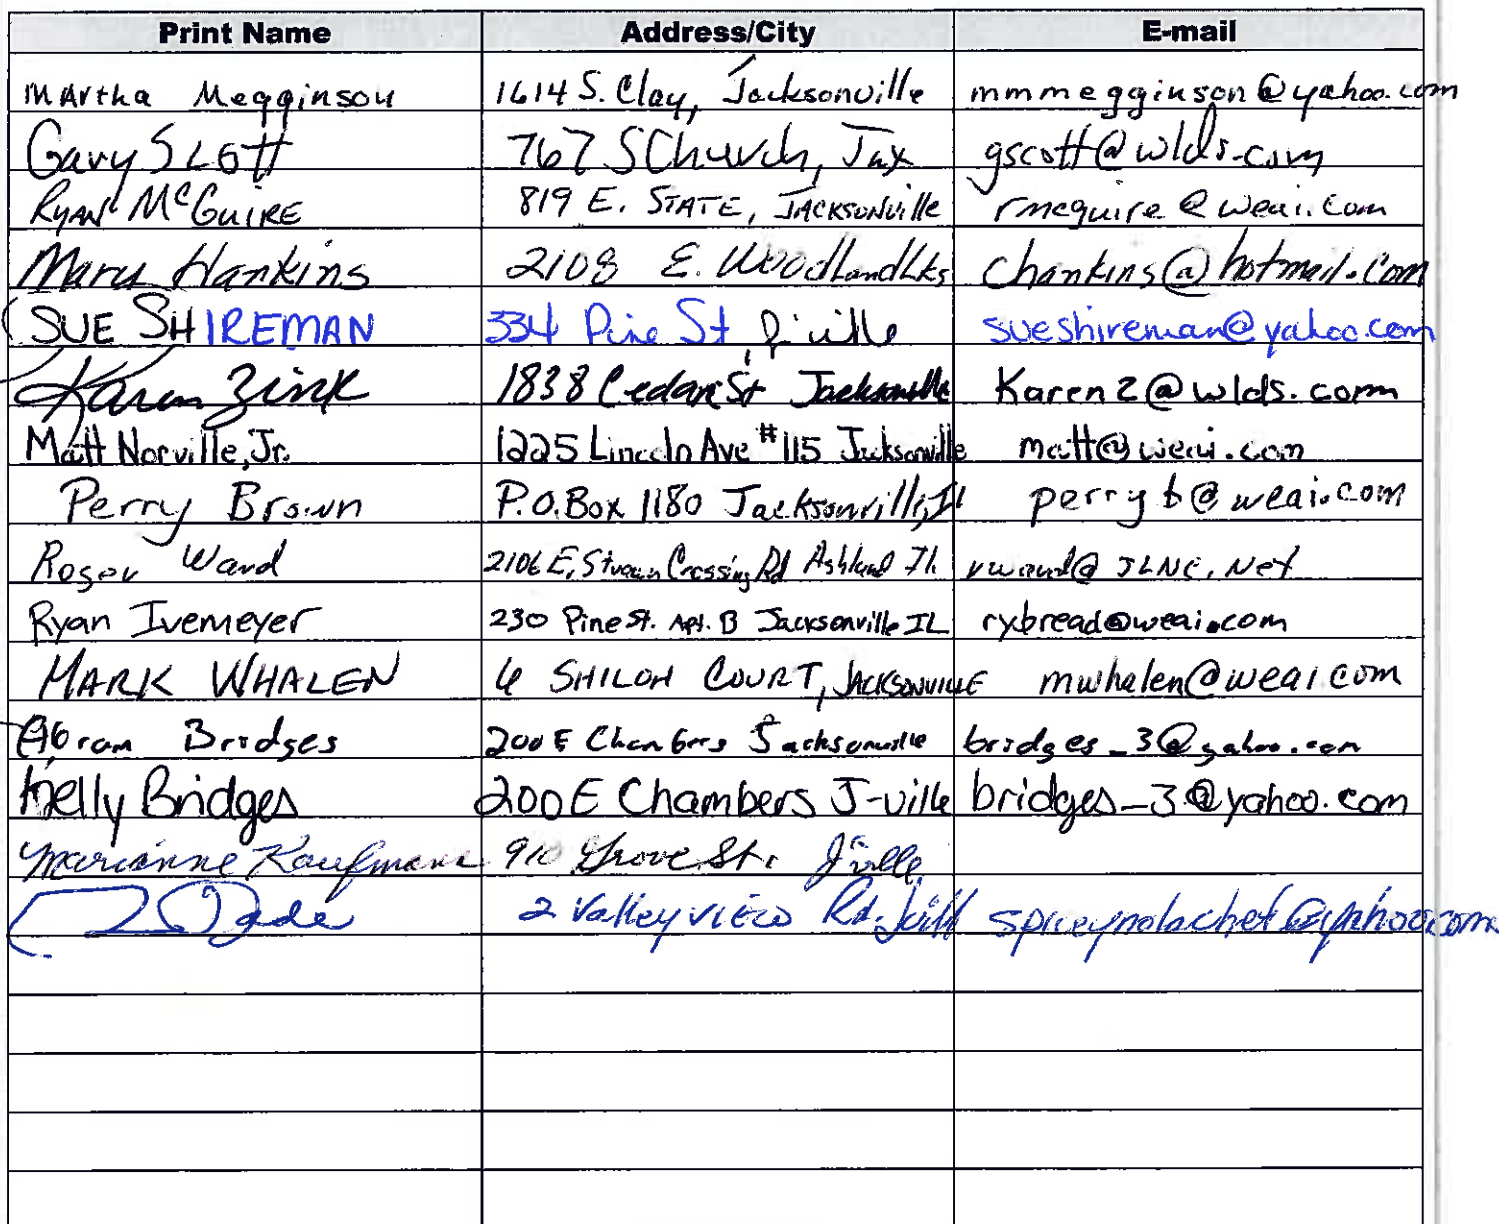 Print Name Address/City E-mail
Martha Megginson 1614 S. Clay, Jacksonville mmmegginson@yahoo.com
Gary Scott 767 S Church, Jax gscott@wlds.com
Ryan McGuire 819 E. State, Jacksonville rmcguire@weai.com
Mary Hankins 2108 E. Woodland Lks chankins@hotmail.com
SUE SHIREMAN 334 Pine St, J'ville sueshireman@yahoo.com
Karen Zink 1838 Cedar St Jacksonville Karenz@wlds.com
Matt Norville, Jr. 1225 Lincoln Ave #115 Jacksonville matt@weai.com
Perry Brown P.O. Box 1180 Jacksonville, Il perryb@weai.com
Roger Ward 2106 E. Stream Crossing Rd Ashland Il. rward@JLNC.Net
Ryan Ivemeyer 230 Pine St. Apt. B Jacksonville IL rybread@weai.com
MARK WHALEN 6 SHILOH COURT, JACKSONVILLE mwhalen@weai.com
Abram Bridges 200 E Chambers Jacksonville bridges_3@yahoo.com
Kelly Bridges 200 E Chambers J-ville bridges_3@yahoo.com
Marianne Kaufmann Grove St. J'ville
2 Valleyview Rd. Jvill